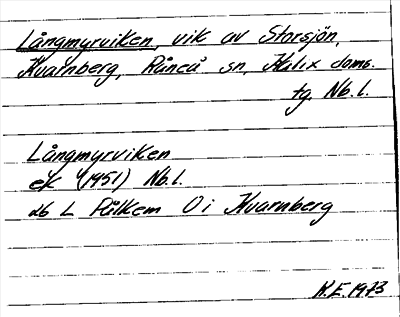 Långmyrviken, vik av Storsjön,
Kvarnberg, Råneå sn, Kalix doms.
tg. Nb.l.
Långmyrviken
ek (1951) Nb.l.
db L Pålkem O i Kvarnberg
K.E. 1973